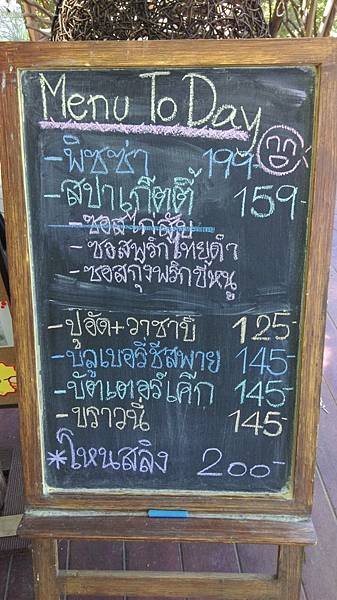 Menu To Day
-พิซซ่า 199-
-สปาเก็ตตี้ 159-
-ซอสไก่สับ
-ซอสพริกไทยดำ
-ซอสกุ้งพริกขี้หนู
-ปูอัด+วาซาบิ 125-
-บลูเบอรี่ชีสพาย 145-
-บัตเตอร์เค๊ก 145-
-บราวนี่ 145-
*โหนสลิง 200-